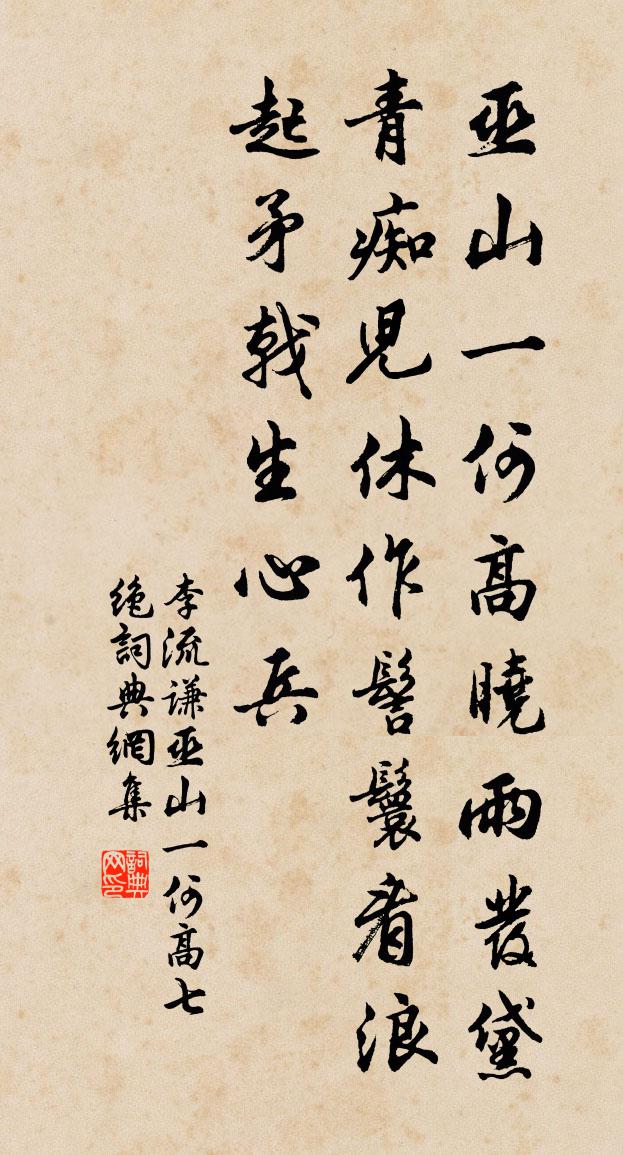 巫山一何高曉雨發黛
青痴児休作髻鬟看浪
起矛戟生心兵
李流謙巫山一何高七
絶詞典網集
詞典
网印